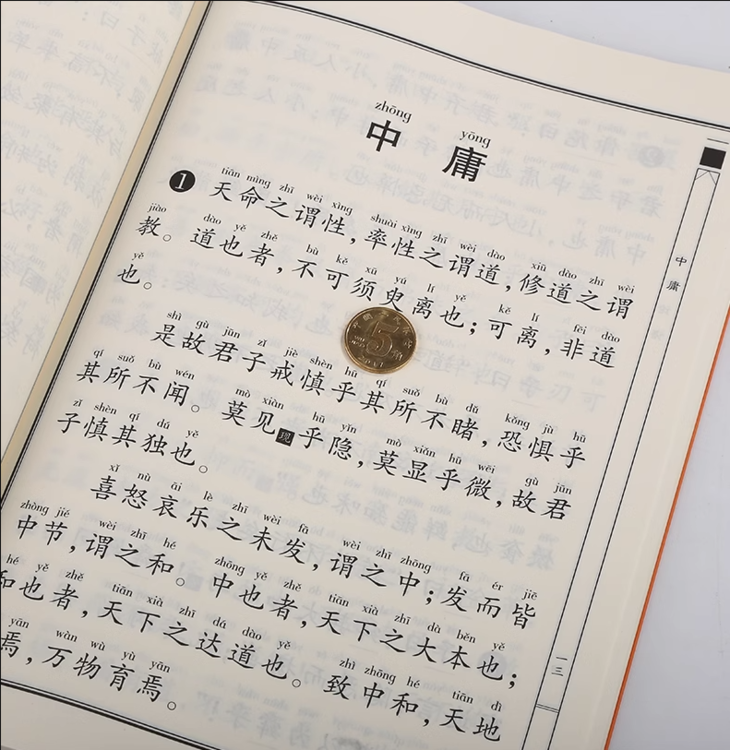 zhōng yōng
中庸
tiān mìng zhī wèi xìng shuài xìng zhī wèi dào xiū dào zhī wèi
❶天命之谓性，率性之谓道，修道之谓
jiào dào yě zhě bù kě xū yú lí yě kě lí fēi dào
教。道也者，不可须臾离也；可离，非道
yě
也。
shì gù jūn zǐ jiè shèn hū qí suǒ bù dǔ kǒng jù hū
是故君子戒慎乎其所不睹，恐惧乎
qí suǒ bù wén mò xiàn hū yǐn mò xiǎn hū wēi gù jūn
其所不闻。莫见现乎隐，莫显乎微，故君
zǐ shèn qí dú yě
子慎其独也。
xǐ nù āi lè zhī wèi fā wèi zhī zhōng fā ér jiē
喜怒哀乐之未发，谓之中；发而皆
zhòng jié wèi zhī hé zhōng yě zhě tiān xià zhī dà běn yě
中节，谓之和。中也者，天下之大本也；
hé yě zhě tiān xià zhī dá dào yě zhì zhōng hé tiān dì
和也者，天下之达道也。致中和，天地
yān wàn wù yù yān
焉，万物育焉。
中庸
一三
5角